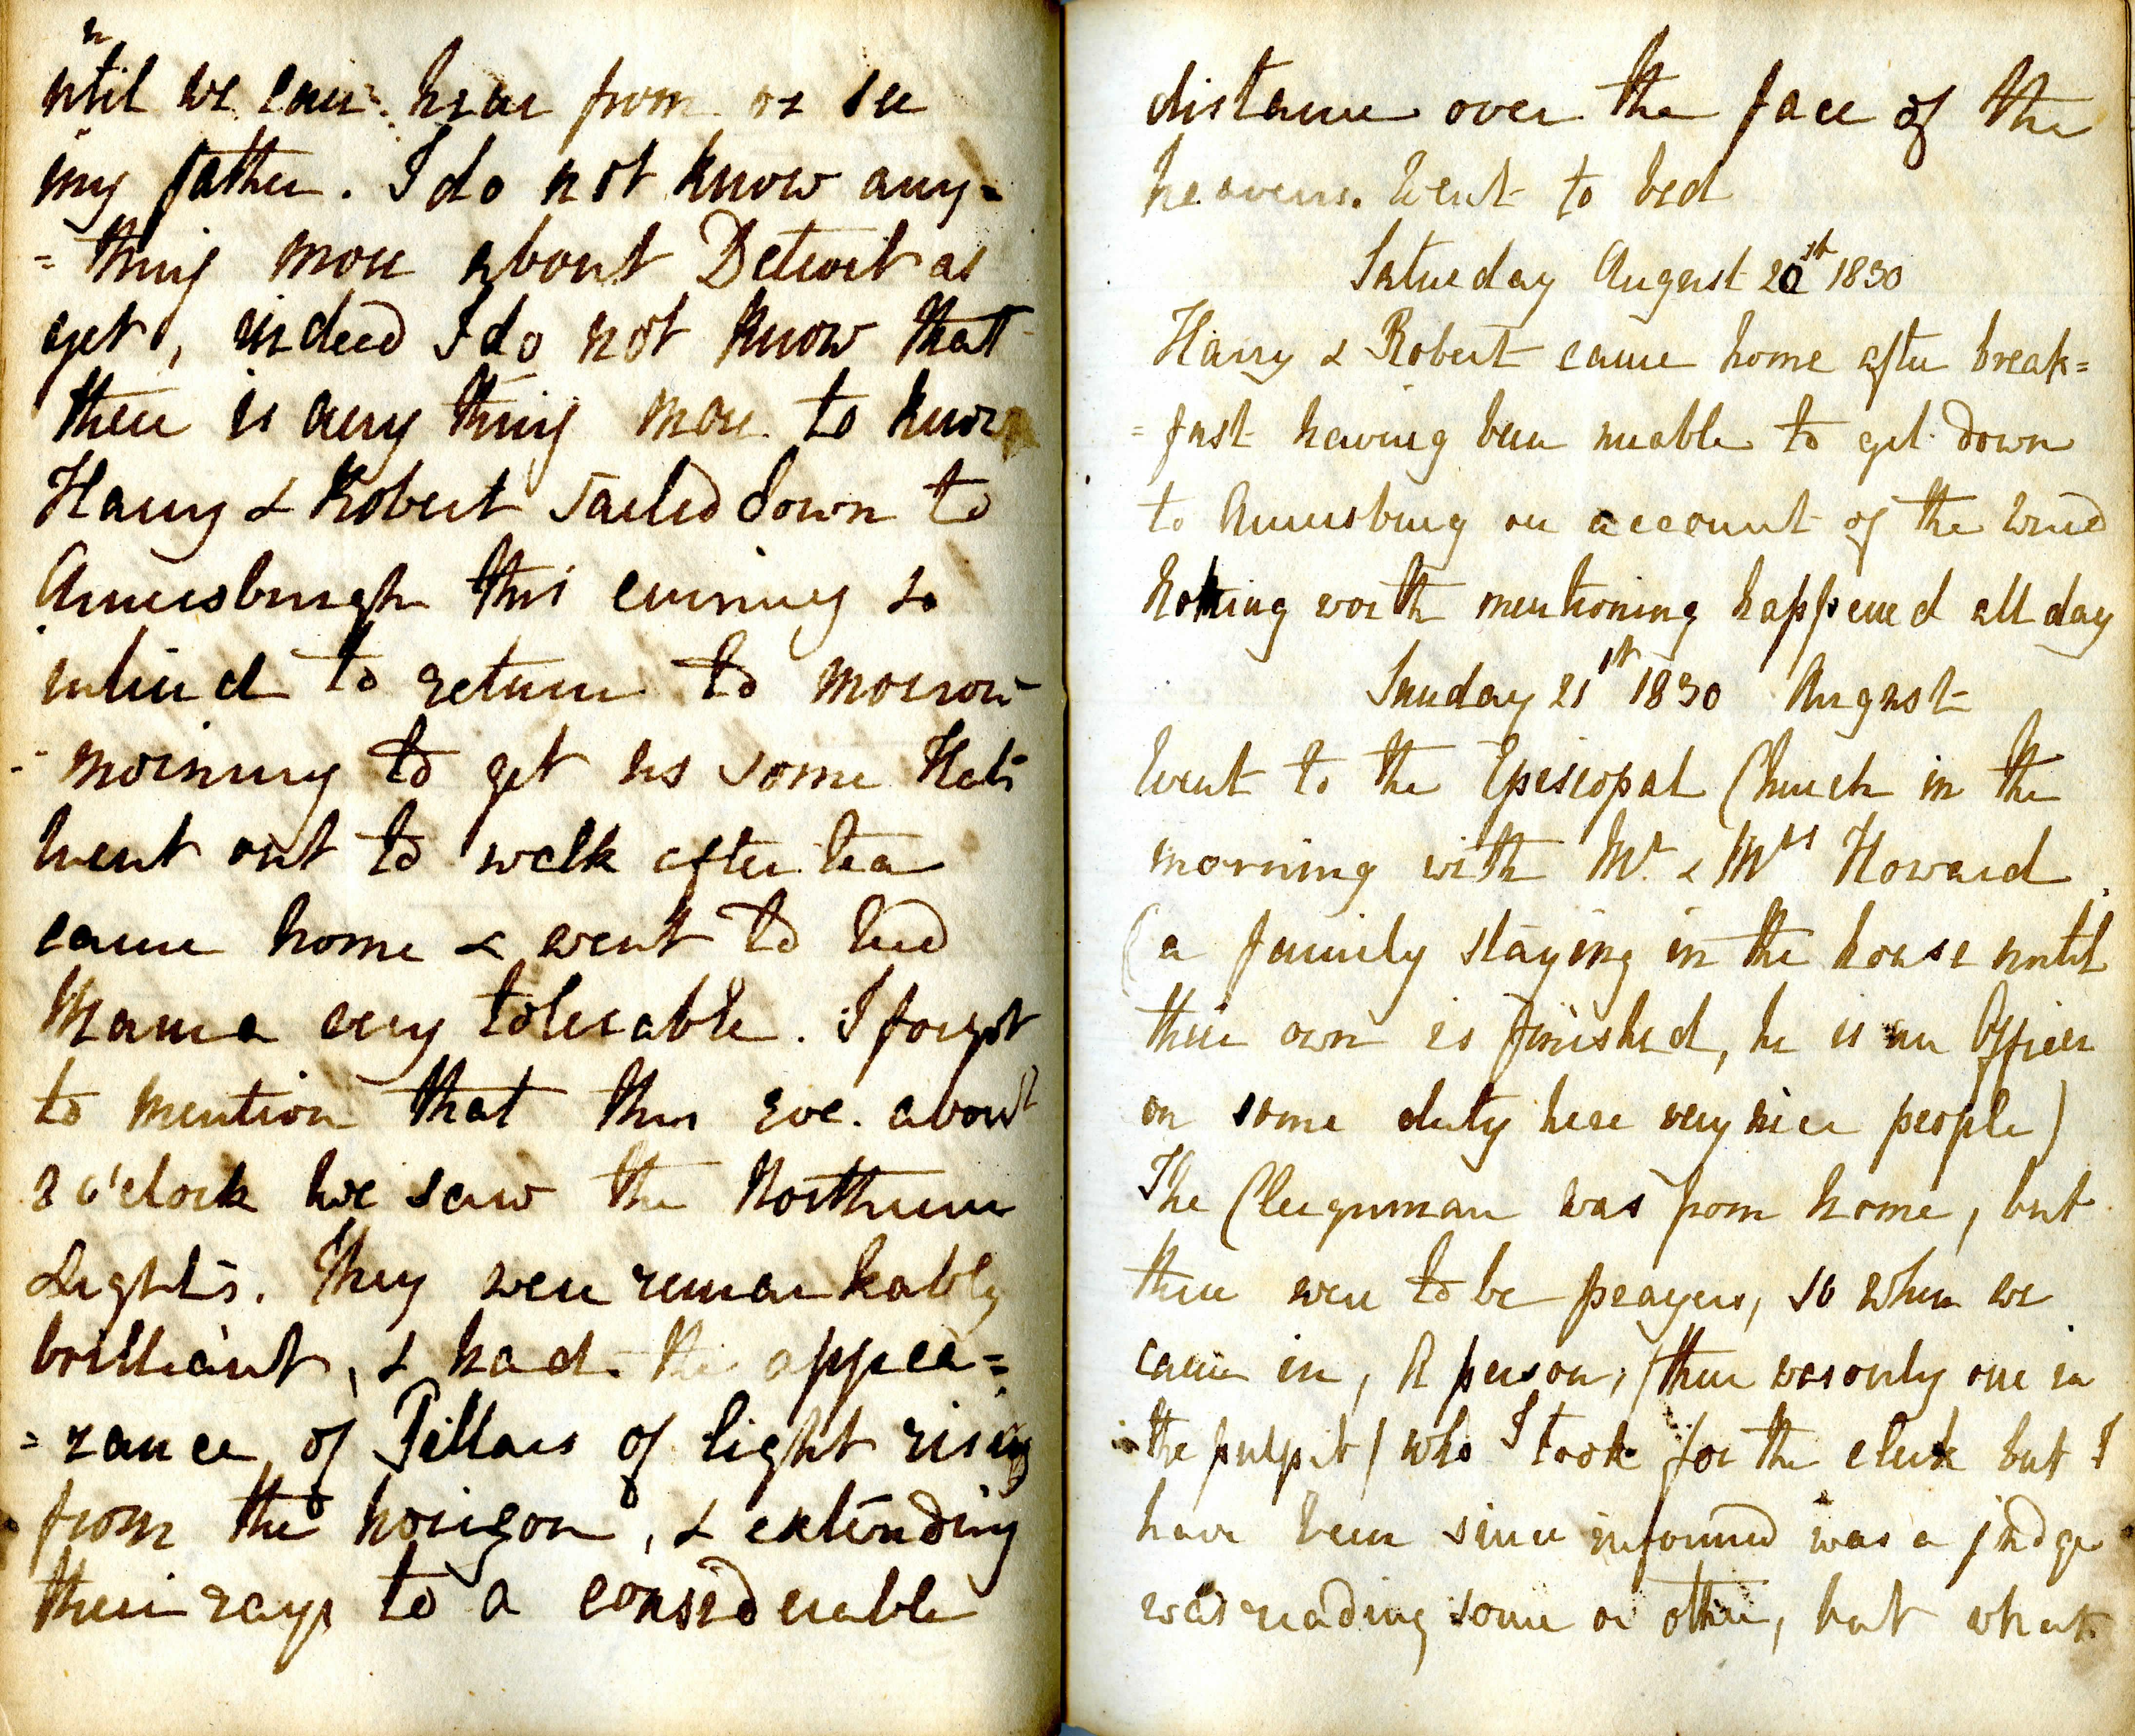 until we can hear from or see
my father. I do not know any=
= thing more about Detroit as
yet, indeed I do not know that
there is any thing more to know
Harry & Robert sailed down to
Amersburgh this evening &
intend to return to morrow
- morning to get us some Hats
Went out to walk after tea
came home & went to bed
Mama very tolerable. I forgot
to mention that this eve. about
8 o'clock we saw the Northern
Lights. They were remarkably
brilliant, & had the appea=
=rance of Pillars of light rising
from the horizon, & extending
their rays to a considerable
distance over the face of the
heavens. Went to bed
Saturday August 20st 1830
Harry & Robert came home after break=
= fast having been unable to get down
to Amersburg on account of the wind
Nothing worth mentioning happened all day
Sunday 21st 1830 August
Went to the Episcopal Church in the
morning with Mr. & Mrs Howard
(a family staying in the house until
their own is finished, he is an Officer
on some duty here very nice people)
The Clergyman was from home, but
there were to be prayers, so when we
came in, A person, (there was only one in
the pulpit) who I took for the clerk but I
have been since informed was a judge
was reading some or other, but what